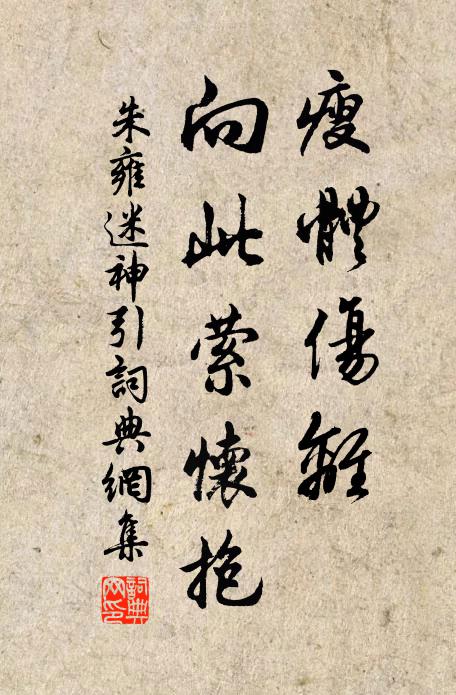 瘦體傷離
向此縈懷抱
朱雍迷神引詞典網集
詞典网印